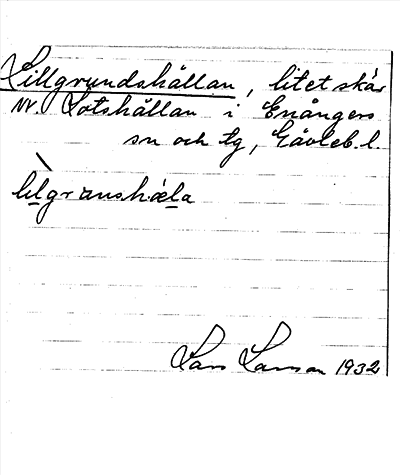 Lillgrundshällan, litet skär
NV. Lotshällan i Enångers
sn och tg, Gävleb. l.
lilgranshæla
Lars Larsson 1932